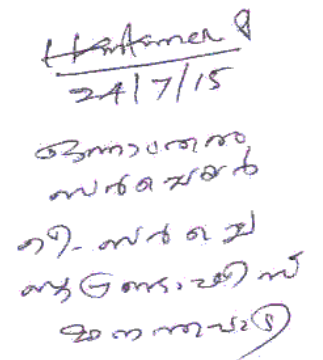 24/7/15
ഒന്നാംതരം
സർവെയർ
റീ-സർവെ
സൂപ്രണ്ടാഫീസ്
മാനന്തവാടി